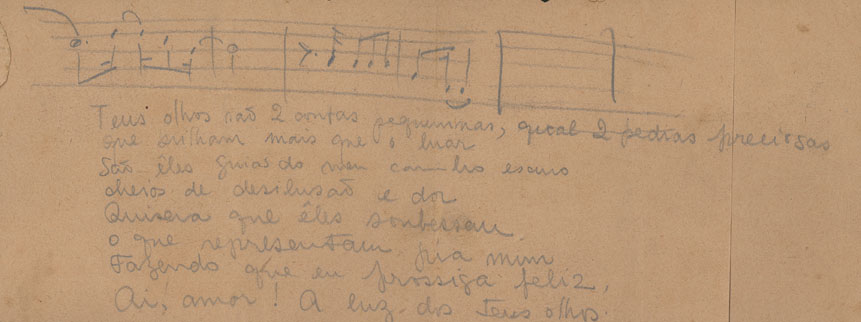 Teus olhos são 2 contas pequeninas, qual 2 pedras preciosas
que brilham mais que o luar
São êles guias do meu caminho escuro
cheios de desilusão e dor
Quisera que êles soubessem
o que representam pra mim
Fazendo que eu prossiga feliz,
Ai, amor! A luz dos teus olhos.